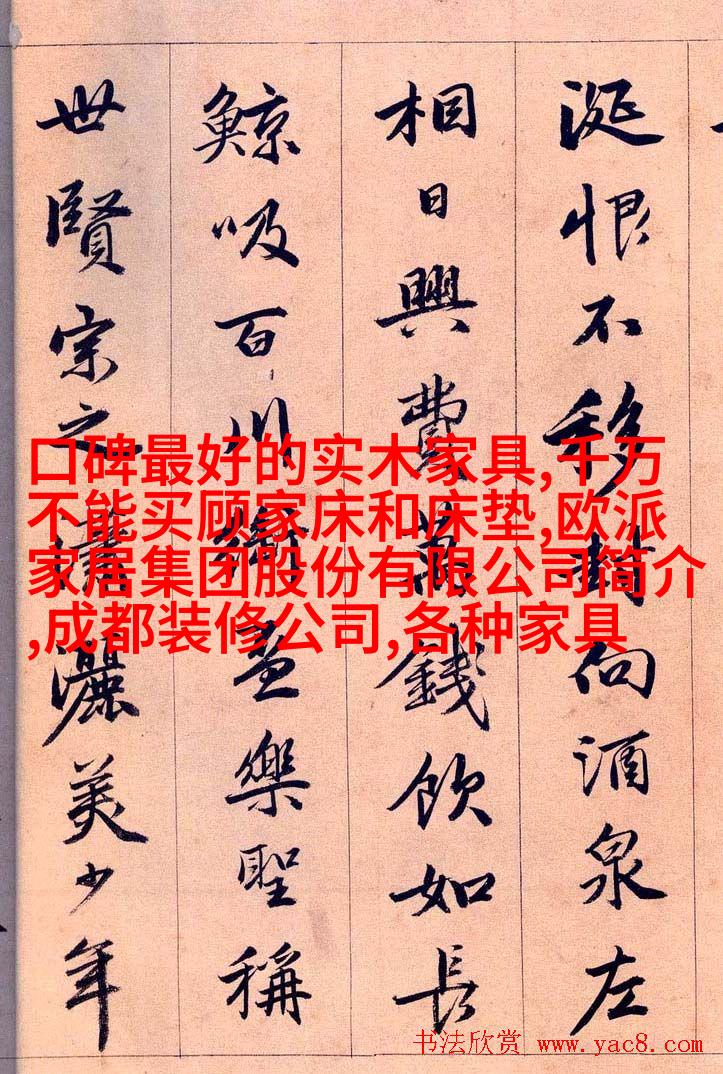 涎恨不移封向酒泉左
相日興費萬錢飲如長
鯨吸百川銜盃樂聖稱
世賢宗之瀟灑美少年
口碑最好的实木家具,千万
不能买顾家床和床垫,欧派
家居集团股份有限公司简介
,成都装修公司,各种家具
书法欣赏 www.yac8.com